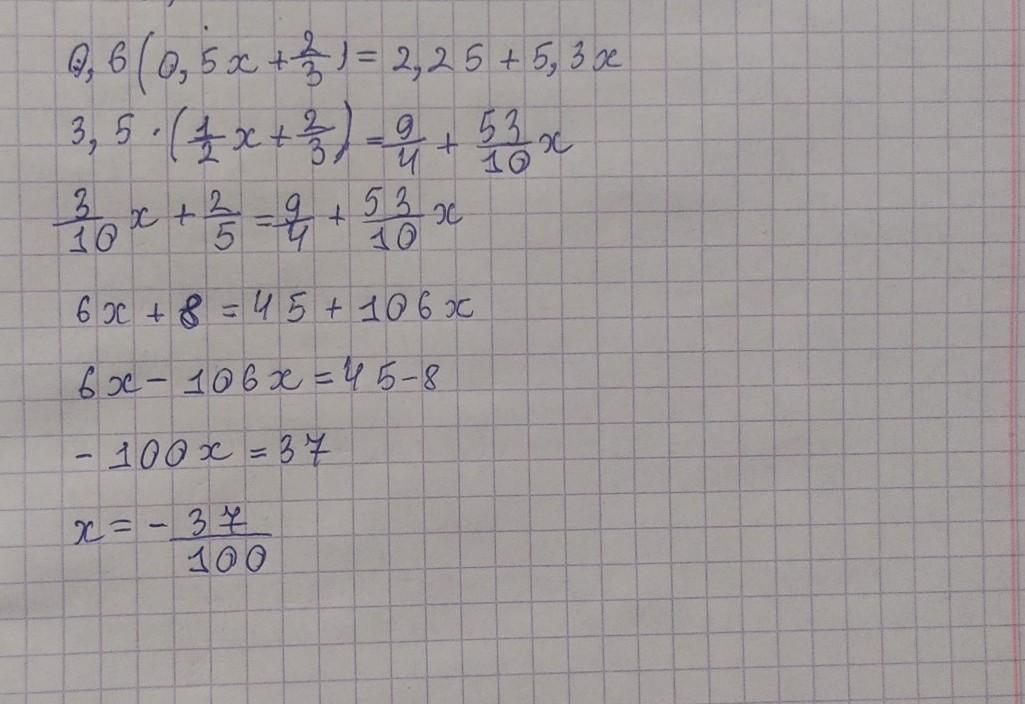 0,6(0,5x+2/3)=2,25+5,3x
3,5·(1/2x+2/3)=9/4+53/10x
3/10x+2/5=9/4+53/10x
6x+8=45+106x
6x-106x=45-8
-100x=37
x=-37/100